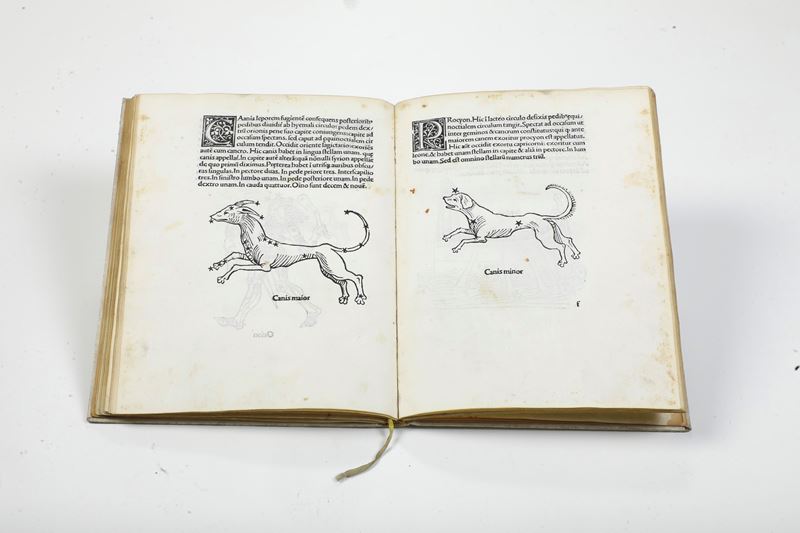 CAnis leporem fugientē consequens posteriorib⁹
pedibus diuidit̄ ab hyemali circulo: pedem dex/
trū orionis pene suo capite coniungens: capite ad
occasum spectans. sed caput ad equinoctialem cir
culum tendit. Occidit oriente sagictario: exoriēs
autē cum cancro. Hic canis habet in lingua stellam unam. que
canis appellat̄. In capite autē alterā: quā nōnulli syrion appellāt
de quo prius diximus. Preterea habet ī utrisq; auribus obscu/
ras singulas. In pectore duas. In pede priore tres. Interscapilio
tres. In sinistro lumbo unam. In pede posteriore unam. In pede
dextro unam. In cauda quattuor. Oīno sunt decem & nouē.
Canis maior
PRocyon. Hic ī lacteo circulo defixus pedib⁹ equi/
noctialem circulum tangit. Spectat ad occasum ut
inter geminos & cancrum constitutus: qui q ante
maiorem canem exoritur procyon est appellatus.
Hic aūt occidit exortu capricorni: exoritur cum
leone. & habet unam stellam in capite & aliā in pectore. In lum
bo unam. Sed est omnino stellarū numerus triū.
Canis minor
f